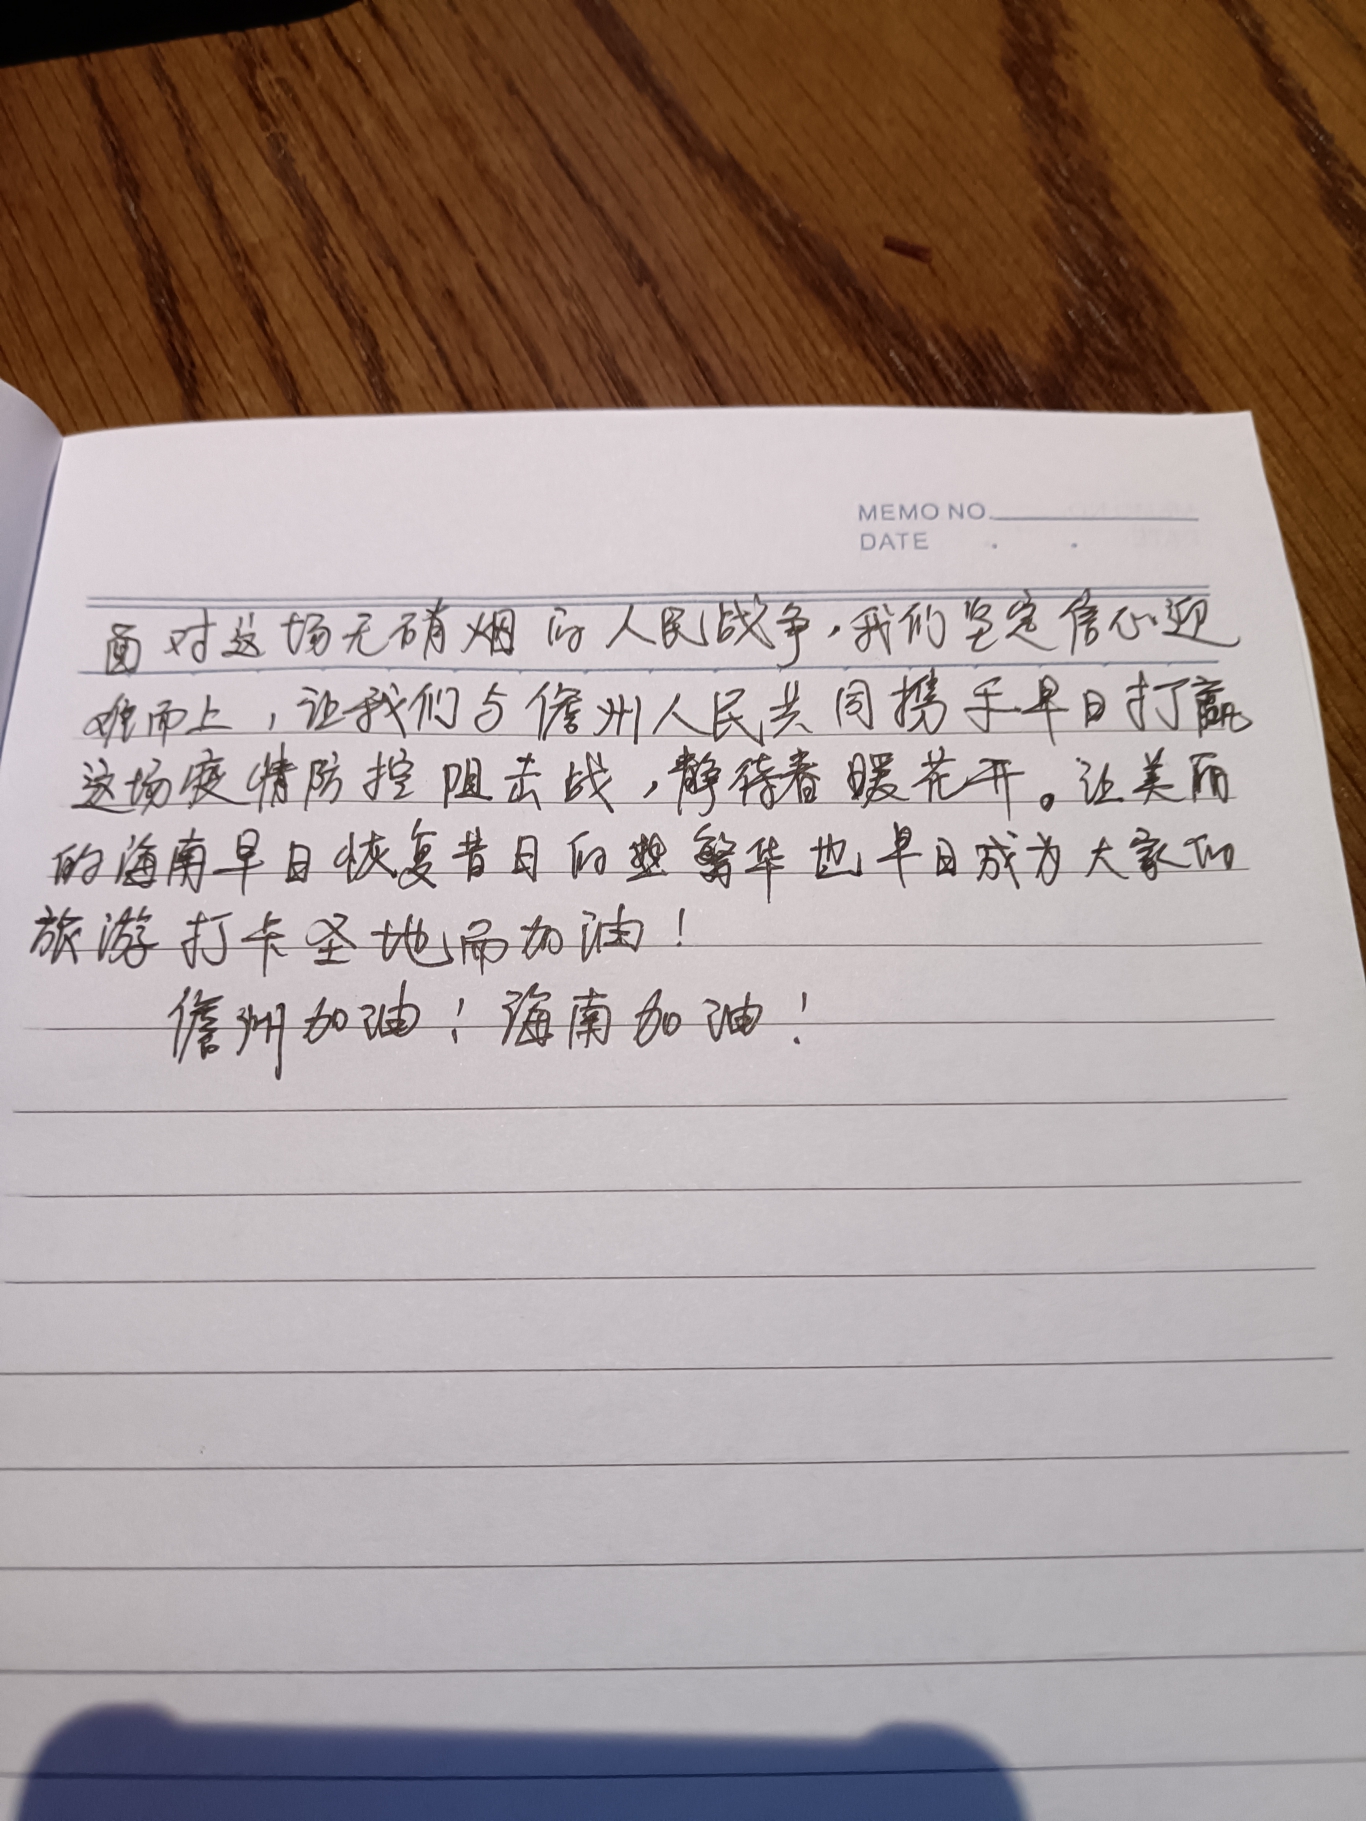 MEMO NO.
DATE . .
面对这场无硝烟的人民战争，我们坚定信心迎
难而上，让我们与儋州人民共同携手早日打赢
这场疫情防控阻击战，静待春暖花开。让美丽
的海南早日恢复昔日的繁华也早日成为大家的
旅游打卡圣地而加油！
儋州加油！海南加油！